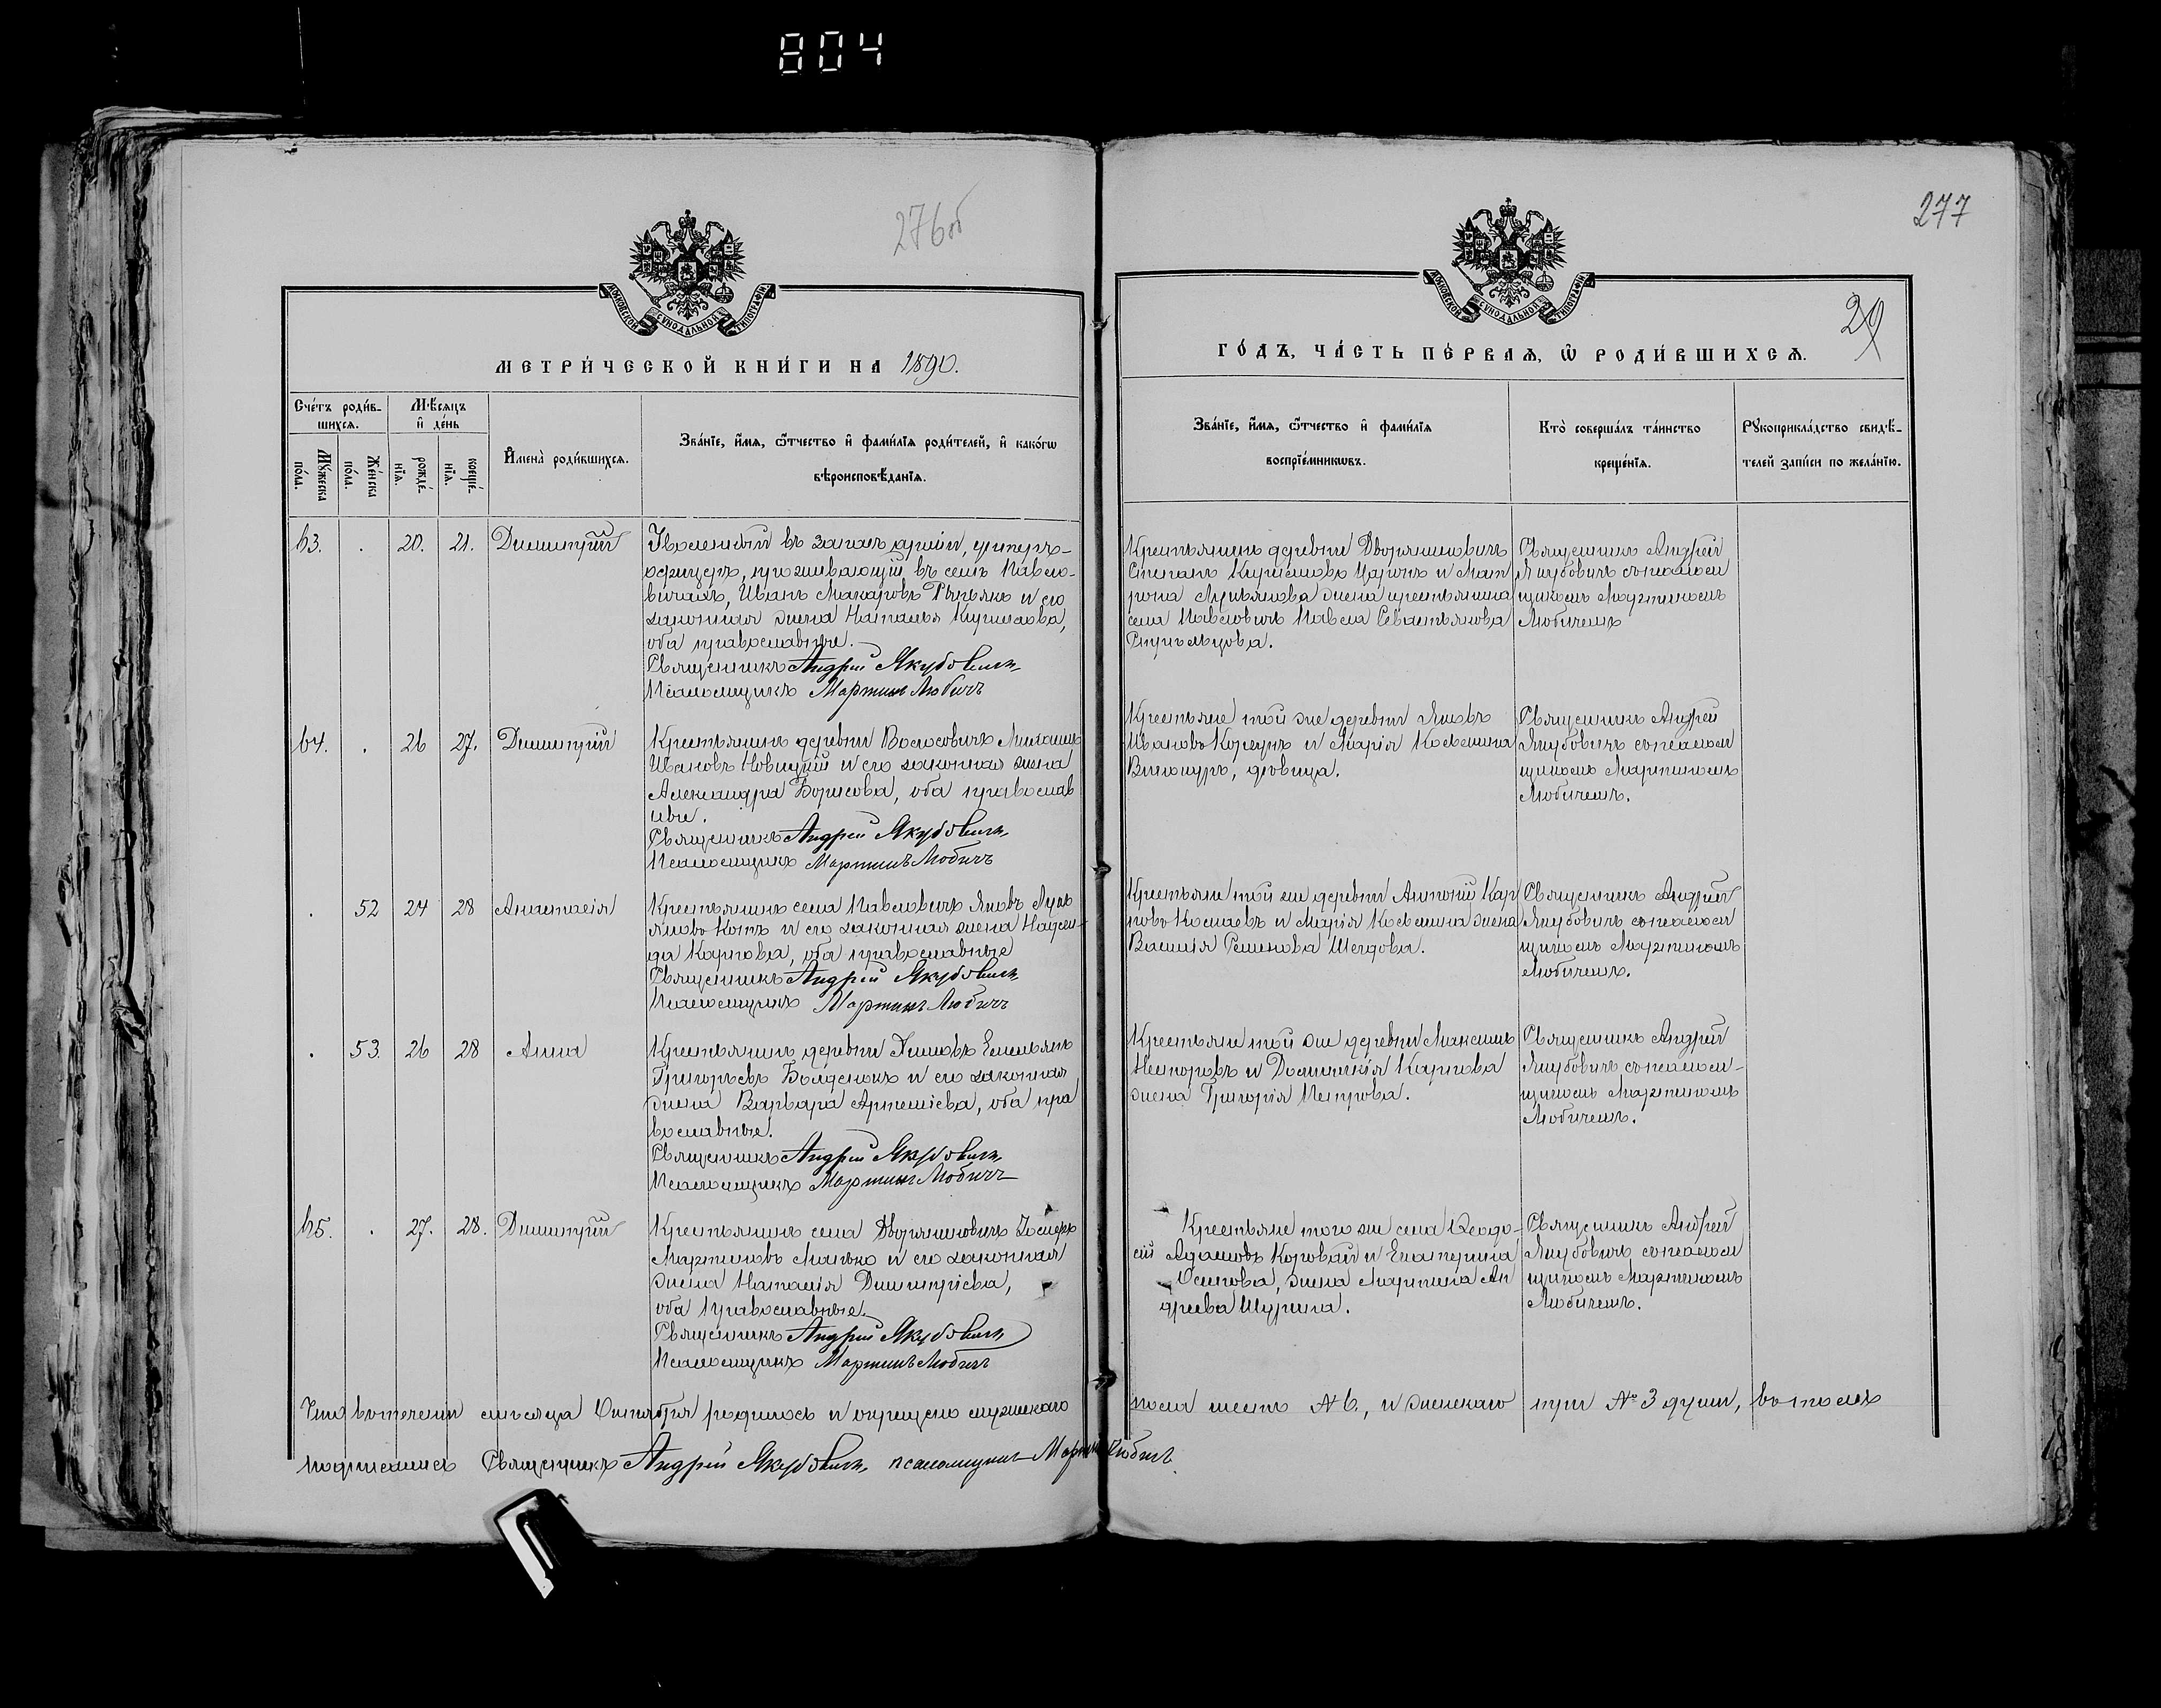 804
276об
277
29
МОСКОВСКОЙ СУНОДАЛЬНОЙ ТИПОГРАФІИ
МОСКОВСКОЙ СУНОДАЛЬНОЙ ТИПОГРАФІИ
МЕТРИ́ЧЕСКОЙ КНИ́ГИ НА 1890.
ГО́ДЪ, ЧА́СТЬ ПЕ́РВАѦ, Ѿ РОДИ́ВШИХСѦ.
Сче́тъ роди́в-
шихсѧ.
Мѣ́сѧцъ
и҆ де́нь
Мꙋ́жеска по́ла.
Же́нска по́ла.
рожде́-нїѧ.
креще́-нїѧ.
И҆мена̀ роди́вшихсѧ.
Зва́нїе, и҆́мѧ, ѻ҆́тчество и҆ фами́лїѧ роди́телей, и҆ како́гѡ
вѣроисповѣ́данїѧ.
Зва́нїе, и҆́мѧ, ѻ҆́тчество и҆ фами́лїѧ
воспрїе́мникѡвъ.
Кто̀ соверша́лъ та́инство
креще́нїѧ.
Рꙋкоприкла́дство свидѣ́-
телей за́писи по жела́нїю.
63. . 20. 21. Димитрій
Уволенный въ запасъ арміи, унтеръ-
офицеръ, проживающій въ селѣ Павло-
вичахъ, Иванъ Макаровъ и его
законная жена Наталья Кириллова,
оба православные.
Священникъ Андрей Якубовичъ
Псаломщикъ Мартинъ Любичъ
Крестьянинъ деревни Дворяниновичъ
Степанъ Кирилловъ и Мат
рона Лукьянова жена крестьянина
села Павловичъ Павла Севастьянова
Священникъ Андрей
Якубовичъ съ псалом
щикомъ Мартиномъ
Любичемъ
64. . 26 27. Димитрій
Крестьянинъ деревни
Ивановъ Новицкій и его законная жена
Александра Борисова, оба православ
ные.
Священникъ Андрей Якубовичъ
Псаломщикъ Мартинъ Любичъ
Крестьяне той же деревни Яковъ
Ивановъ и Марія Косьмина
дѣвица.
Священникъ Андрей
Якубовичъ съ псалом
щикомъ Мартиномъ
Любичемъ.
. 52 24 28 Анастасія
Крестьянинъ села Павловичъ Яковъ Лукь
яновъ Котъ и его законная жена Надеж-
да Карпова, оба православные
Священникъ Андрей Якубовичъ
Псаломщикъ Мартинъ Любичъ
Крестьяне той же деревни Антоній Кар
повъ и Марія Косьмина жена
Василія Семенова
Священникъ Андрей
Якубовичъ съ псалом
щикомъ Мартиномъ
Любичемъ.
. 53. 26 28 Анна
Крестьянинъ деревни Емельянъ
Григорьевъ и его законная
жена Варвара Артеміева, оба пра
вославные.
Священникъ Андрей Якубовичъ
Псаломщикъ Мартинъ Любичъ
Крестьяне той же деревни Максимъ
Несторовъ и Домникія Карпова
жена Григорія Петрова.
Священникъ Андрей
Якубовичъ съ псалом-
щикомъ Мартиномъ
Любичемъ.
65. . 27. 28. Димитрій
Крестьянинъ села Дворяниновичъ Іосифъ
Мартиновъ и его законная
жена Наталія Димитріева,
оба православные.
Священникъ Андрей Якубовичъ
Псаломщикъ Мартинъ Любичъ
Крестьяне того же села Ѳеодо-
сій Адамовъ Коровай и Екатерина
Осипова, жена Мартина Ан
дреева Шурина.
Священникъ Андрей
Якубовичъ съ псалом
щикомъ Мартиномъ
Любичемъ.
Что въ теченіи мѣсяца Октября родилось и окрещено мужескаго пола шесть №6, и женскаго три №3 души, въ томъ
подписались Священникъ Андрей Якубовичъ, псаломщикъ Мартинъ Любичъ